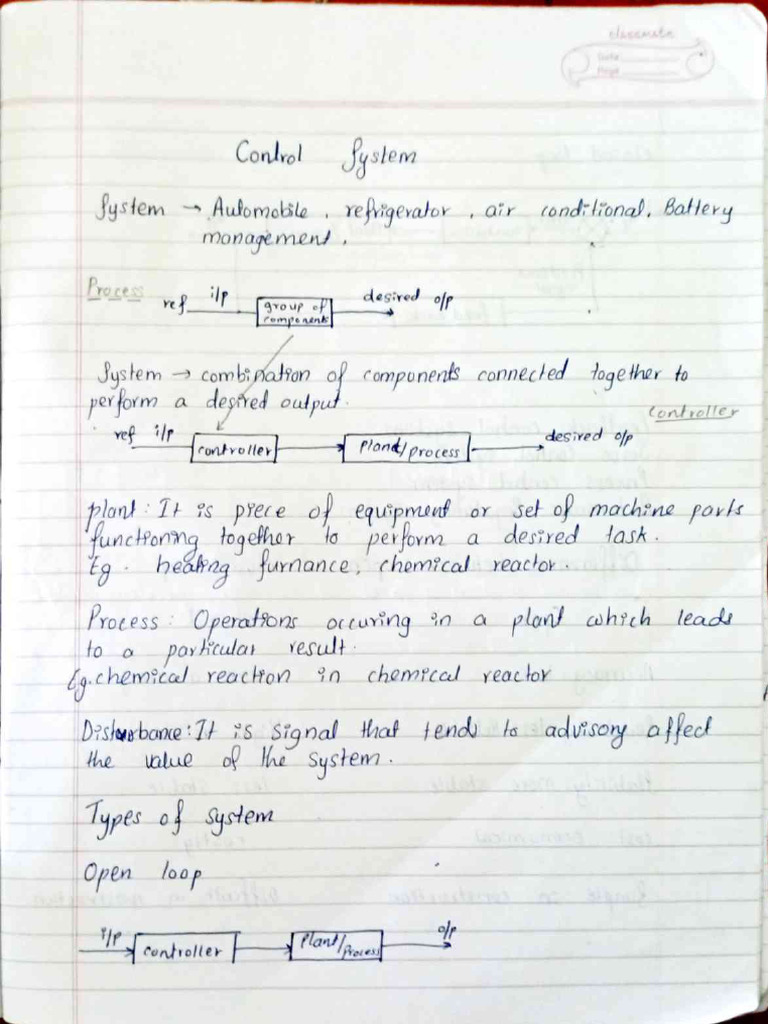 classmate
Date
Page
Control System
System → Automobile, refrigerator, air conditional, Battery
management.
Process
ref i/p group of components desired o/p
System → combination of components connected together to
perform a desired output.
controller
ref i/p controller plant/process desired o/p
plant: It is piece of equipment or set of machine parts
functioning together to perform a desired task.
Eg. heating furnance, chemical reactor.
Process: Operations occuring in a plant which leads
to a particular result.
Eg. chemical reaction in chemical reactor
Disturbance: It is signal that tends to advisory affect
the value of the system.
Types of system
Open loop
i/p controller plant/process o/p